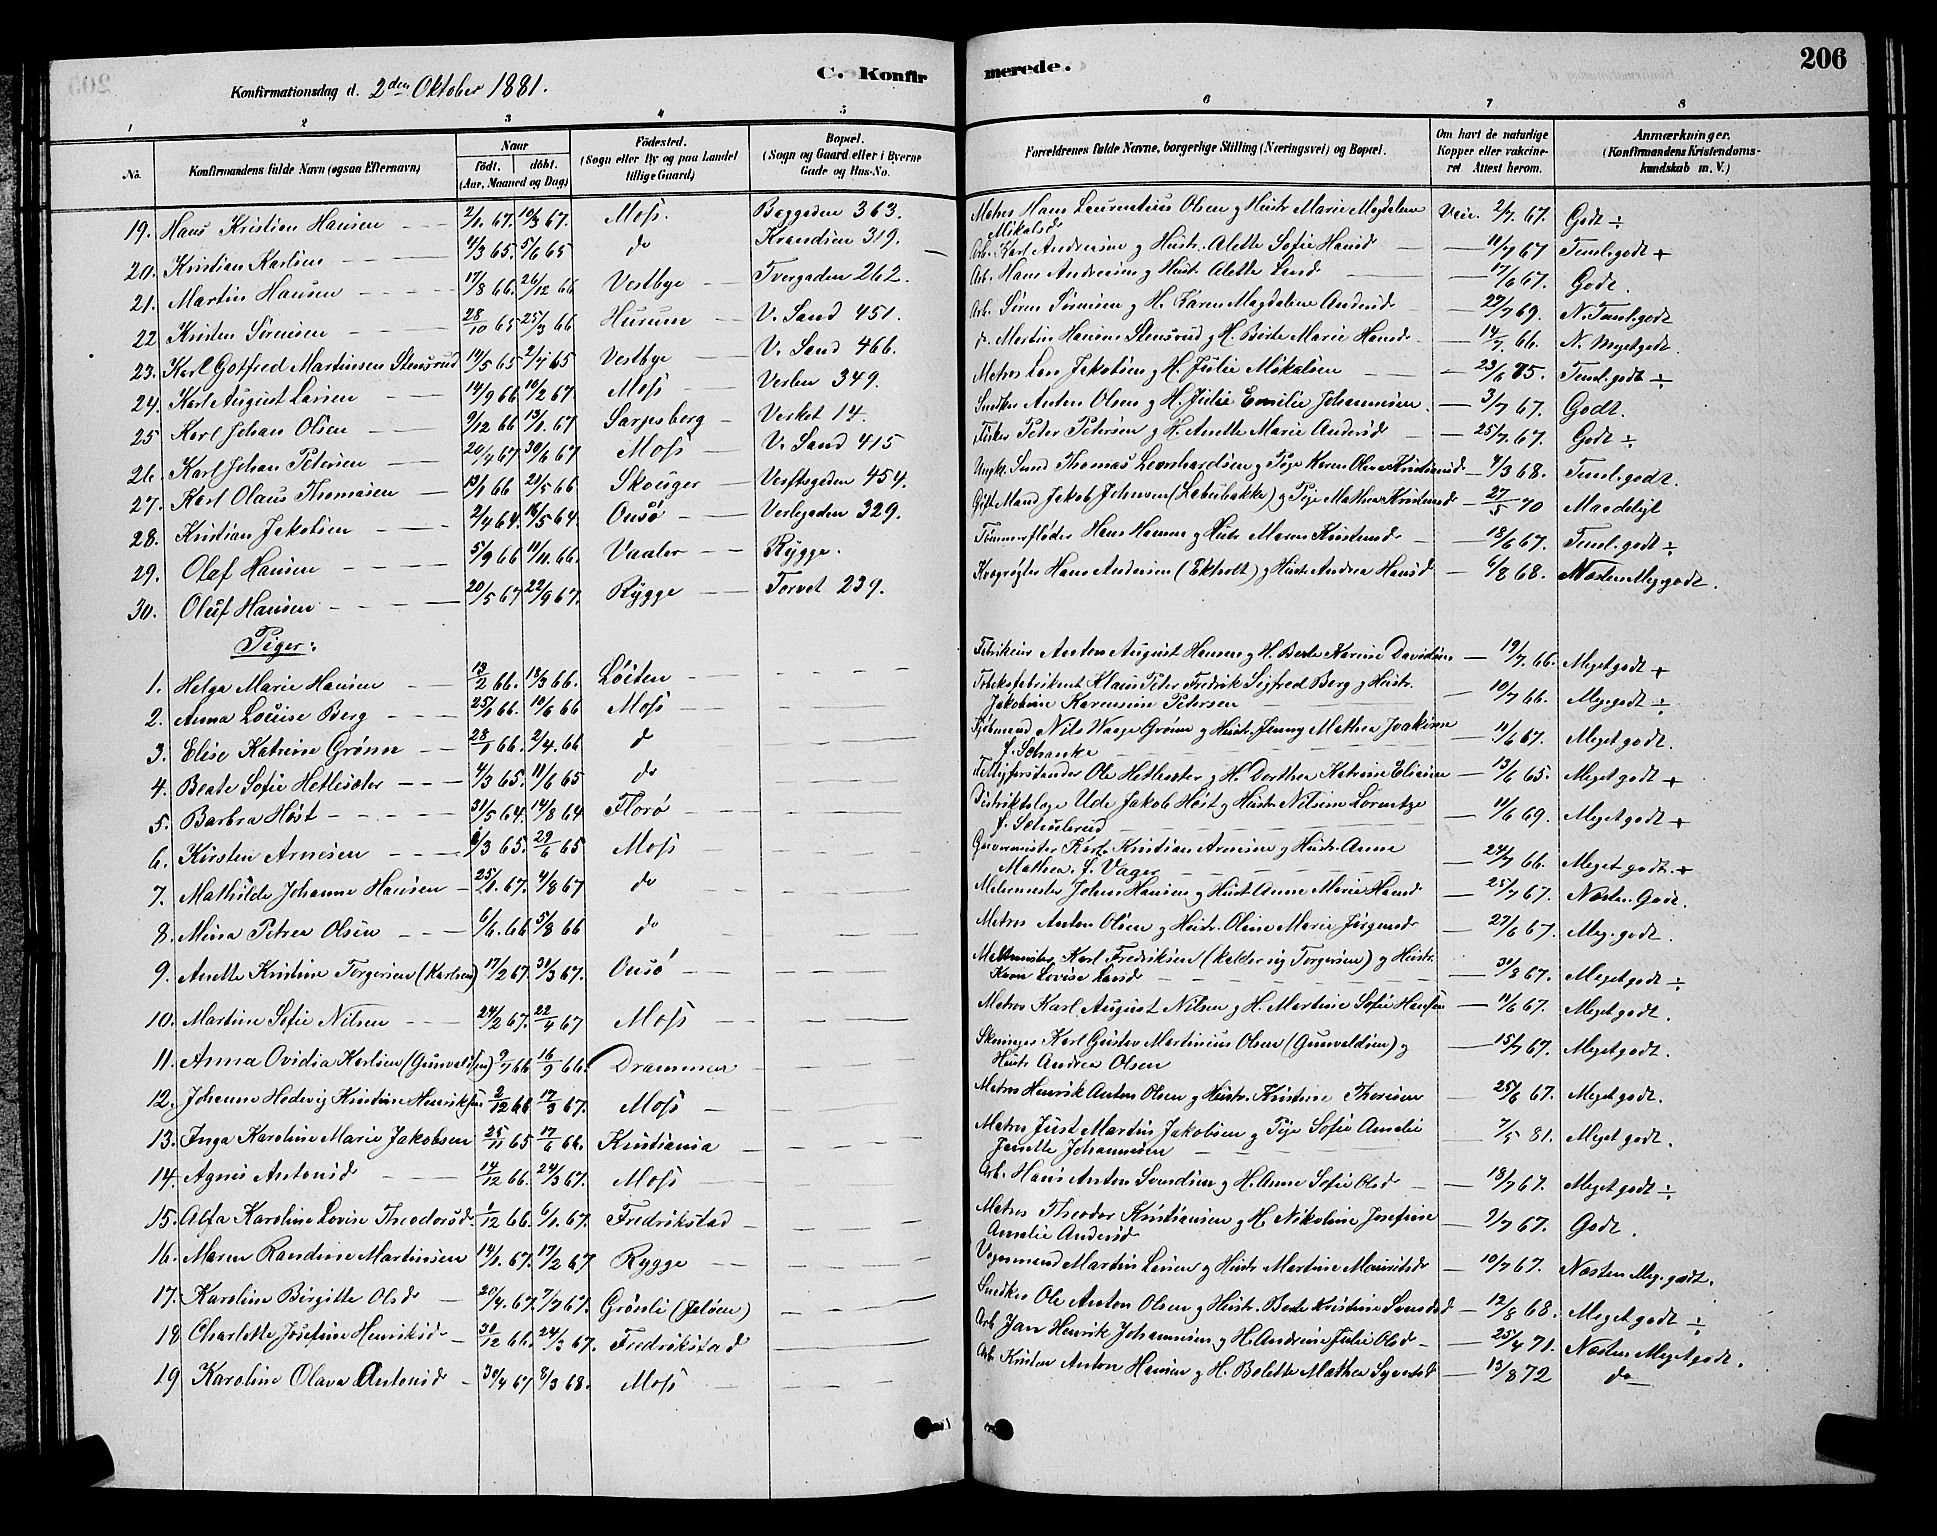 206
C. Konfirmerede.
Konfirmationsdag d. 2den Oktober 1881.
1 2 3 4 5 6 7 8
No. Konfirmandens fulde Navn (ogsaa Efternavn) Naar födt. döbt. (Aar, Maaned og Dag) Födested. (Sogn eller By og paa Landet tillige Gaard) Bopæl. (Sogn og Gaard eller i Byerne Gade og Hus-No. Forældrenes fulde Navne, borgerlige Stilling (Næringsvei) og Bopæl. Om havt de naturlige Kopper eller vakcineret Attest herom. Anmærkninger. (Konfirmandens Kristendomskundskab m. V.)
19. Hans Kristian Hansen 2/1 67. 10/3 67. Moss. 363. Matros Hans Laurentius Olsen g Hustr Marie Magdalene Mikalsd Vcic. 2/7 67. Godt ÷
20. Kristian Karlsen 4/3 65. 5/6 65 do 319. Arb. Karl Andreasen g Hustr. Alette Sofie Hansd 11/7 67 Teml. godt +
21. Martin Hansen 17/8 66. 26/12 66 Vestbye Tvergaden 262. Arb. Hans Andersen g Hustr Alette 17/6 67. Godt.
22 Kristen Sörensen 28/10 65 25/3 66 Hurum V. Sand 451. Arb. Sören Sörensen g H. Karen Magdalene Andersd 22/7 69. N. Teml. godt
23. Karl Gotfred Martinsen Stensrud 14/5 65 2/7 65 Vestbye V. Sand 466. d. Martin Hansen Stensrud g H. Berte Marie Hansd 14/7 66. N. Meget godt.
24. Karl August Larsen 14/9 66 10/2 67. Moss 349. Matros Lars Jakobsen g H. Julie Mikalsen 23/6 75. Teml. godt ÷
25 Karl Johan Olsen 9/12 66 13/1 67 Sarpsborg Verket 14. Snedker Anton Olsen g H. Julie Emilie Johannesen. 3/7 67. Godt.
26. Karl Johan Petersen 20/4 67. 30/6 67 Moss V. Sand 415 Fisker Peter Petersen g H. Anette Marie Andersd 25/7 67. Godt ÷
27. Karl Olaus Thomasen 13/1 66 21/5 66 Skouger Verftsgaden 454. Ungk. Thomas Leonhardsen g Pige Karen Oline Kristiansd 4/3 68. Teml. godt.
28. Kristian Jakobsen 2/4 64. 16/5 64. Onsø Verlegaden 329. Gift Mand Jakob Johnsen g Pige Mathea Kristensd 27/5 70 Maadeligt
29. Olaf Hansen 5/9 66 11/11 66. Vaaler Rygge. Tömmerfløder Hans Hansen g Hustr Maren Kristensd 18/6 67. Teml. godt ÷
30. Oluf Hansen 20/5 67 22/9 67. Rygge Torvet 239. Kvægrøgter Hans Andersen (Ekholt) g Hustr Andrea Hansd 6/8 68. Næsten Meg. godt.
Piger:
1. Helga Marie Hansen 13/2 66. 18/3 66. Löiten Anton August Hansen g H. Berte Karine Davidsen 19/7 66. Meget godt +
2. Anna Louise Berg 25/1 66. 10/6 66 Moss Tobaksfabrikant Klaus Peter Fredrik Sigfred Berg g Hustr. Jakobine Karensine Petersen 10/7 66. Meg. godt ÷
3. Elise Katrine Grønn 28/1 66. 2/4. 66 do Kjøbmand Nils Waage Grønn g Hustr. Jenny Mathea Joakime f. Schanke 11/6 67. Meget godt.
4. Beate Sofie Hetlesæter 4/3 65. 11/6 65 do Ole Hetlesæter g H. Dorthea Katrine Eliesen 13/6 65. Meget godt +
5. Barbra Høst 31/5 64. 14/8 64 Florø Distriktslæge Ude Jakob Høst g Hustr Nilsine Lorentze f. Schulerud 11/6 69. Meget godt +
6. Kirsten Arnesen 6/3 65. 29/6 65 Moss Garvermester Karl Kristian Arnesen g Hustr. Anne Mathea f. Vager 24/7 66. Meget godt. +
7. Mathilde Johanne Hansen 25/1 67. 4/8 67 do Malermester Johan Hansen g Hustr Anne Marie Hansd 25/7 67. Næsten Godt.
8. Mina Petrea Olsen 6/6. 66 5/8 66 do Matros Anton Olsen g Hustr. Oline Marie Jörgensd 27/6 67. Meg. godt.
9. Anette Kristine Torgersen (Karlsen) 17/2 67. 31/3 67. Onsö Karl Fredriksen (kalder sig Torgersen) g Hustr. Karen Lovise Larsd 30/8 67. Meget godt ÷
10. Martine Sofie Nilsen 24/2 67. 22/4 67 Moss Matros Karl August Nilsen g H. Martine Sofie Hansen 11/6 67. Meget godt.
11. Anna Ovidia Karlsen (Gunvaldsen) 9/7 66 16/9 66. Drammen Karl Gustav Martinius Olsen (Gunvaldsen) g Hustr Andrea Olsen 15/7 67. Meget godt.
12. Johanne Hedevig Kristine Henriksen 2/12 66 17/3 67. Moss Matros Henrik Anton Olsen g Hustr. Kristine Thoresen 25/6 67. Meget godt.
13. Inga Karoline Marie Jakobsen 25/11 65 17/6 66. Kristiania Matros Just Martin Jakobsen g Pige Sofie Amalie Janette Johannesen 7/5 81. Meget godt.
14. Agnes Antonsd 14/12 66. 24/3 67. Moss Arb. Hans Anton Svendsen g H. Anne Sofie Olsd 18/7 67. Meget godt ÷
15. Alfa Karoline Lovise Theodorsd. 1/12 66. 6/1 67. Fredrikstad Matros Theodor Kristiansen g H. Nikoline Josefine Amalie Andersd 2/7 67. Godt.
16. Maren Randine Martinsen 14/1. 67. 17/2 67 Rygge Vognmand Martin Larsen g Hustr Martine Mauritsd 10/7 67. Næsten Meg. godt.
17. Karoline Birgitte Olsd 20/4. 67. 7/7 67. Grönli (Jelöen) Snedker Ole Anton Olsen g Hustr. Berte Kristine Svensd 12/8 68. Meget godt ÷
18 Charlotte Josefine Henriksd 31/12 66. 24/3 67. Fredrikstad Arb Jan Henrik Johannesen g H. Andrine Julie Olsd 25/4 71. Næsten Meget godt.
19 Karoline Olava Antonsd 30/4 67 8/3 68. Moss Arb. Kristen Anton Hansen g H. Bolette Mathea Syversd 13/8 72 do